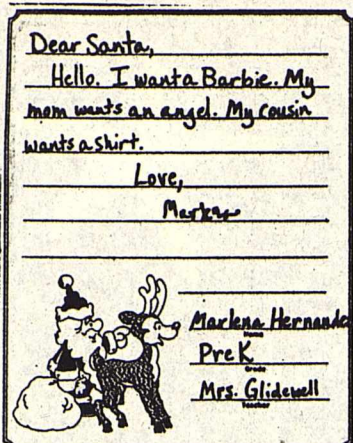 Dear Santa,
Hello. I want a Barbie. My
mom wants an angel. My cousin
wants a shirt.
Love,
Marlena Hernande
Name
Pre K
Grade
Mrs. Glidewell
Teacher